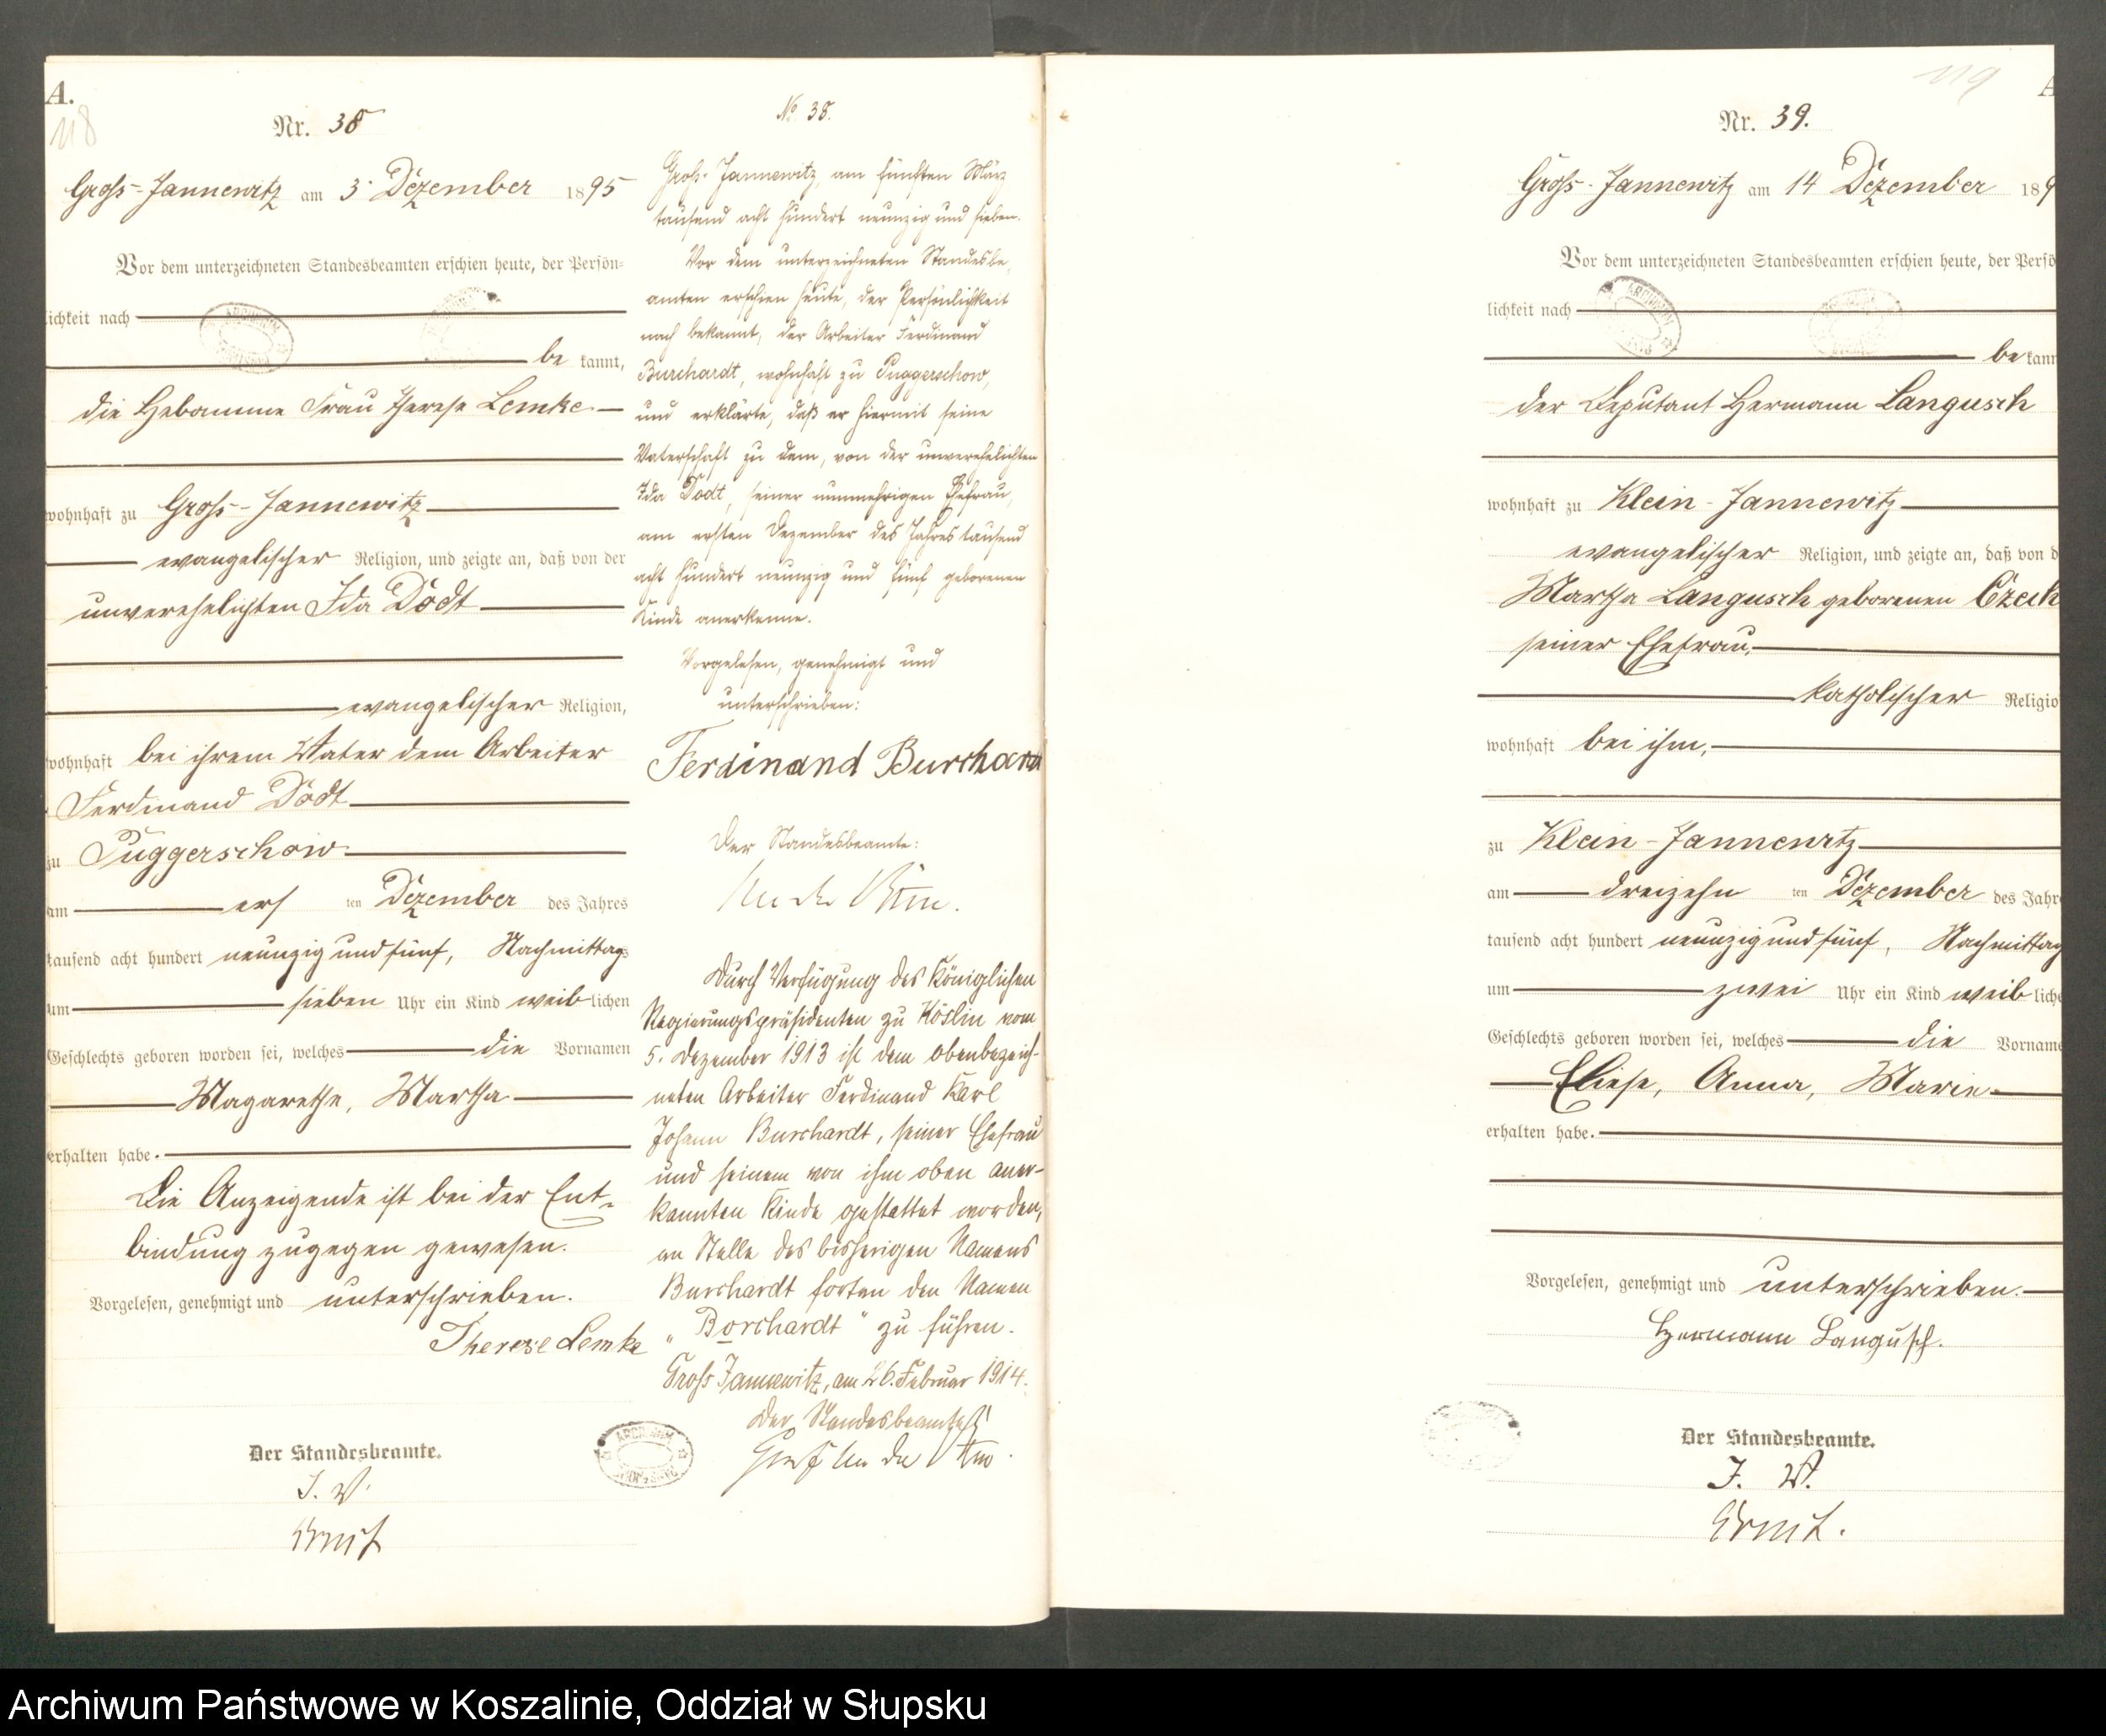 A.
118
Nr. 38
Gross-Jannewitz am 3. Dezember 1895
Vor dem unterzeichneten Standesbeamten erschien heute, der Persön-
lichkeit nach
be kannt,
die Hebamme Frau Therese Lemke
wohnhaft zu Gross-Jannewitz
evangelischer Religion, und zeigte an, daß von der
unverehelichten Ida Dodt
evangelischer Religion,
wohnhaft bei ihrem Vater dem Arbeiter
Ferdinand Dodt
zu Puggerschow
am ers ten Dezember des Jahres
tausend acht hundert neunzig und fünf, Nachmittags
um sieben Uhr ein Kind weiblichen
Geschlechts geboren worden sei, welches die Vornamen
Magarethe, Martha
erhalten habe.
Die Anzeigende ist bei der Ent-
bindung zugegen gewesen.
Vorgelesen, genehmigt und unterschrieben.
Therese Lemke
Der Standesbeamte.
J. V.
No 38.
Gross-Jannewitz, am fünften März
tausend acht hundert neunzig und sieben.
Vor dem unterzeichneten Standesbe-
amten erschien heute, der Persönlichkeit
nach bekannt, der Arbeiter Ferdinand
Burchardt, wohnhaft zu Puggerschow,
und erklärte, daß er hiermit seine
Vaterschaft zu dem, von der unverehelichten
Ida Dodt, seiner nunmehrigen Ehefrau,
am ersten Dezember des Jahres tausend
acht hundert neunzig und fünf geborenen
Kinde anerkenne.
Vorgelesen, genehmigt und
unterschrieben:
Ferdinand Burchardt
Der Standesbeamte:
Durch Verfügung des Königlichen
Regierungspräsidenten zu Köslin vom
5. Dezember 1913 ist dem obenbezeich-
neten Arbeiter Ferdinand Karl
Johann Burchardt, seiner Ehefrau
und seinem von ihm oben aner-
kannten Kinde gestattet worden,
an Stelle des bisherigen Namens
Burchardt fortan den Namen
„Borchardt" zu führen.
Gross Jannewitz, am 26. Februar 1914.
Der Standesbeamte
119
A
Nr. 39.
Gross-Jannewitz am 14 Dezember 189
Vor dem unterzeichneten Standesbeamten erschien heute, der Persö
lichkeit nach
be kann
der Deputant Hermann Langusch
wohnhaft zu Klein-Jannewitz
evangelischer Religion, und zeigte an, daß von d
Martha Langusch geborenen Czech
seiner Ehefrau,
katholischer Religio
wohnhaft bei ihm,
zu Klein-Jannewitz
am dreizehn ten Dezember des Jahr
tausend acht hundert neunzig und fünf, Nachmittag
um zwei Uhr ein Kind weib liche
Geschlechts geboren worden sei, welches die Vorname
Eliese, Anna, Marie
erhalten habe.
Vorgelesen, genehmigt und unterschrieben.
Hermann Langusch.
Der Standesbeamte.
J. V.
Archiwum Państwowe w Koszalinie, Oddział w Słupsku